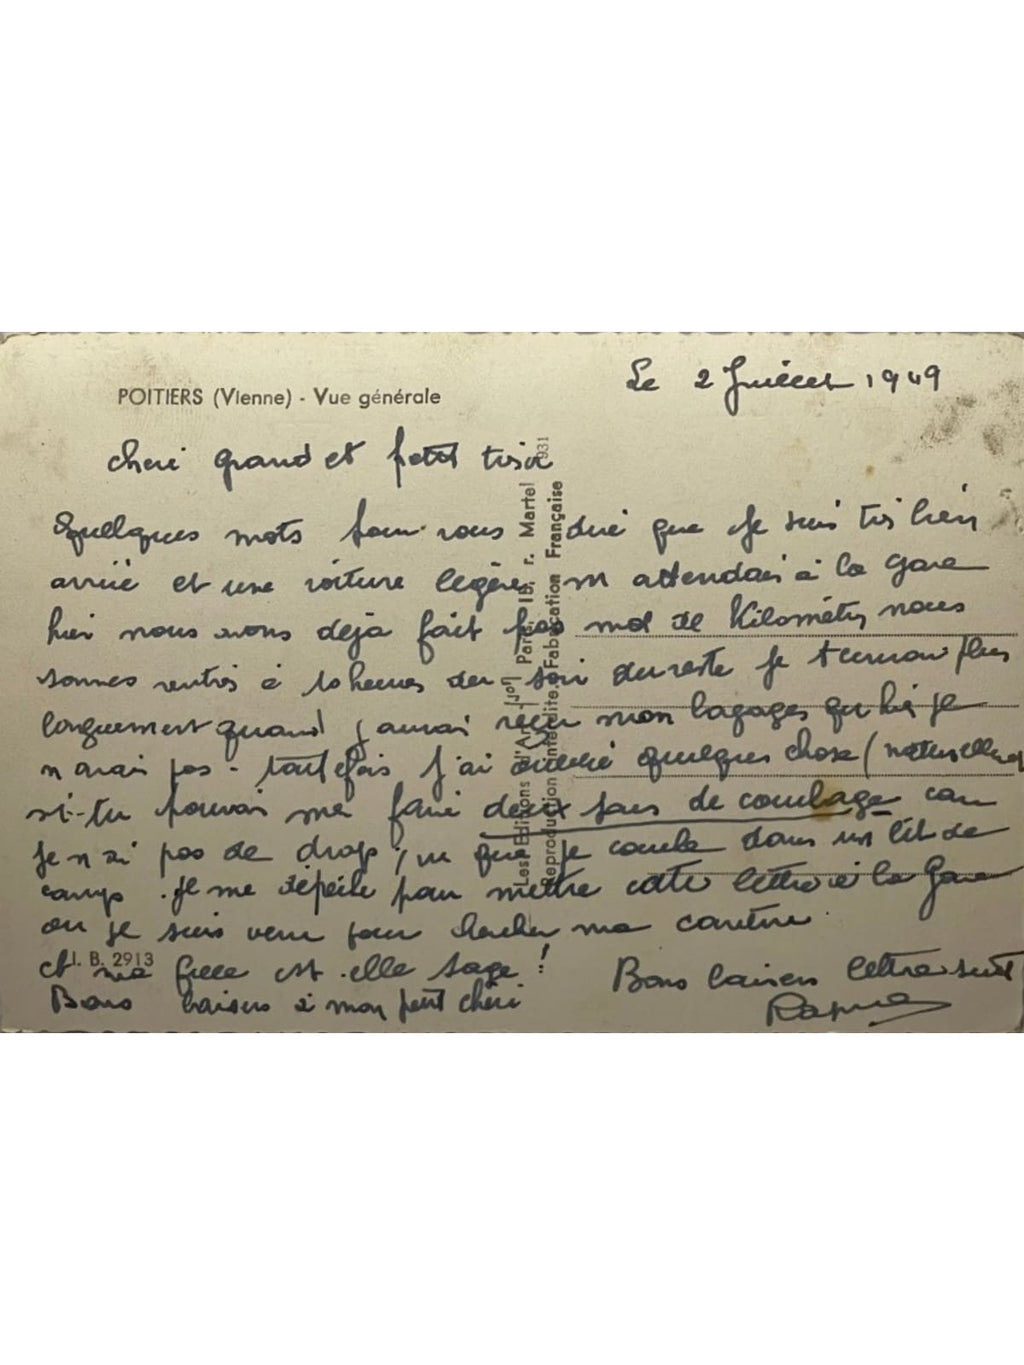 Le 2 Juillet 1949
POITIERS (Vienne) - Vue générale
cheri grand et petit
Quelques mots pour vous dire que je suis très bien
arrivé et une voiture légère m attendais à la gare
hier nous avons déjà fait pas mal de Kilomètres nous
sommes rentrés à 10 heures du soir du reste je plus
longuement quand j aurai reçu mon bagages qu hier je
n avais pas - toutefois j'ai oublié quelques chose (naturellement
si-tu pouvais me faire deux sacs de couchage car
je n ai pas de drap, vu que je couche dans un lit de
camp. Je me dépêche pour mettre cette lettre à la Gare
ou je suis venu pour chercher ma cantine.
et ma fille est-elle sage !
Bons baisers à mon petit chéri
Bons baisers lettre suit
I. B. 2913
Les Editions d'Art Paris, 1b, r. Martel 931
Reproduction Interdite. Fabrication Française